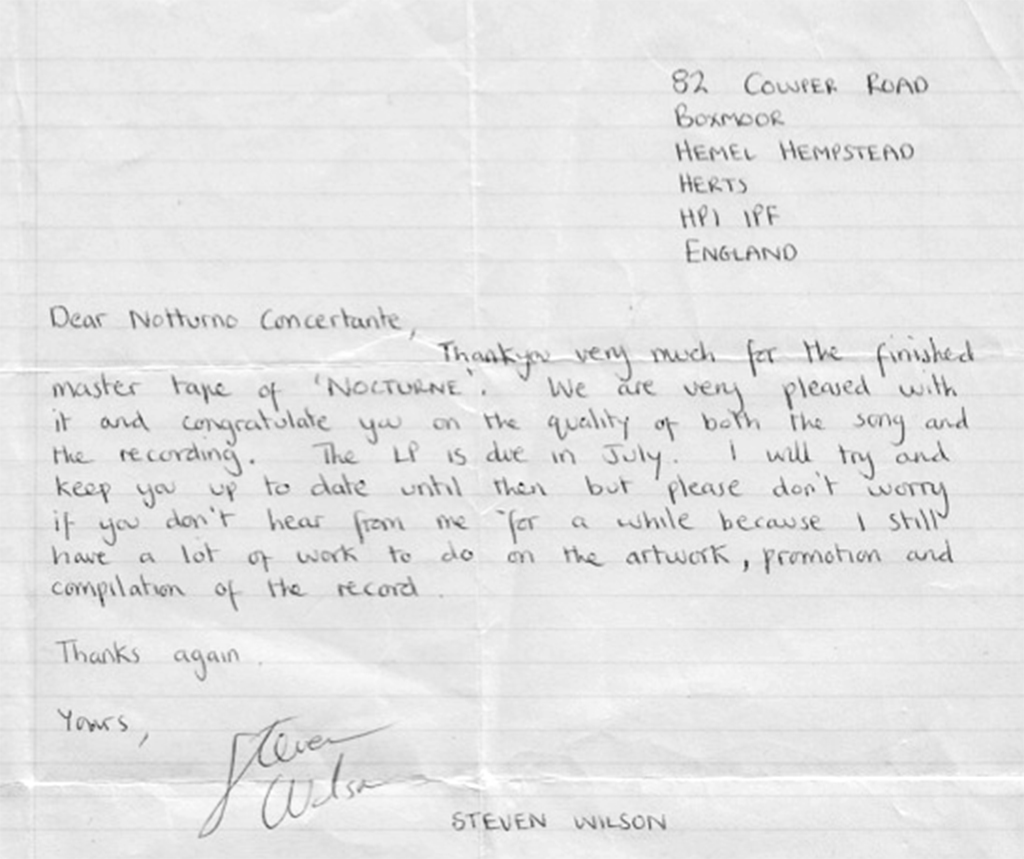 82 COWPER ROAD
BOXMOOR
HEMEL HEMPSTEAD
HERTS
HP1 1PF
ENGLAND
Dear Notturno Concertante,
Thankyou very much for the finished
master tape of 'NOCTURNE'. We are very pleased with
it and congratulate you on the quality of both the song and
the recording. The LP is due in July. I will try and
keep you up to date until then but please don't worry
if you don't hear from me for a while because I still
have a lot of work to do on the artwork, promotion and
compilation of the record.
Thanks again.
Yours,
Steven
Wilson
STEVEN WILSON